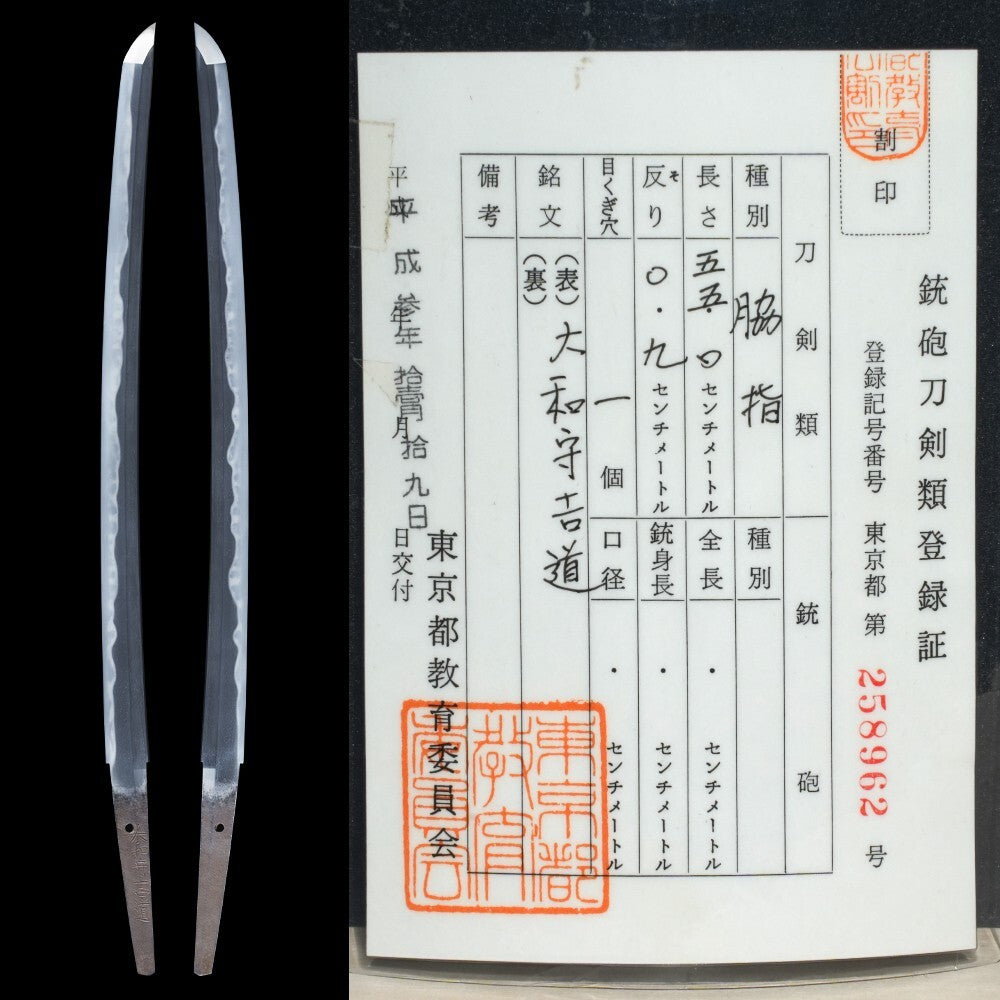 銃砲刀剣類登録証
割印
登録記号番号 東京都 第 258962 号
刀剣類
銃砲
種別 脇指
種別
長さ 五五.〇センチメートル
全長 ・ センチメートル
反り そ 〇.九センチメートル
銃身長 ・ センチメートル
目くぎ穴 一個
口径 ・ センチメートル
銘文 (表) 大和守吉道
(裏)
備考
平成参年拾壱月拾九日交付
東京都教育委員会
東京都
教育
委員会